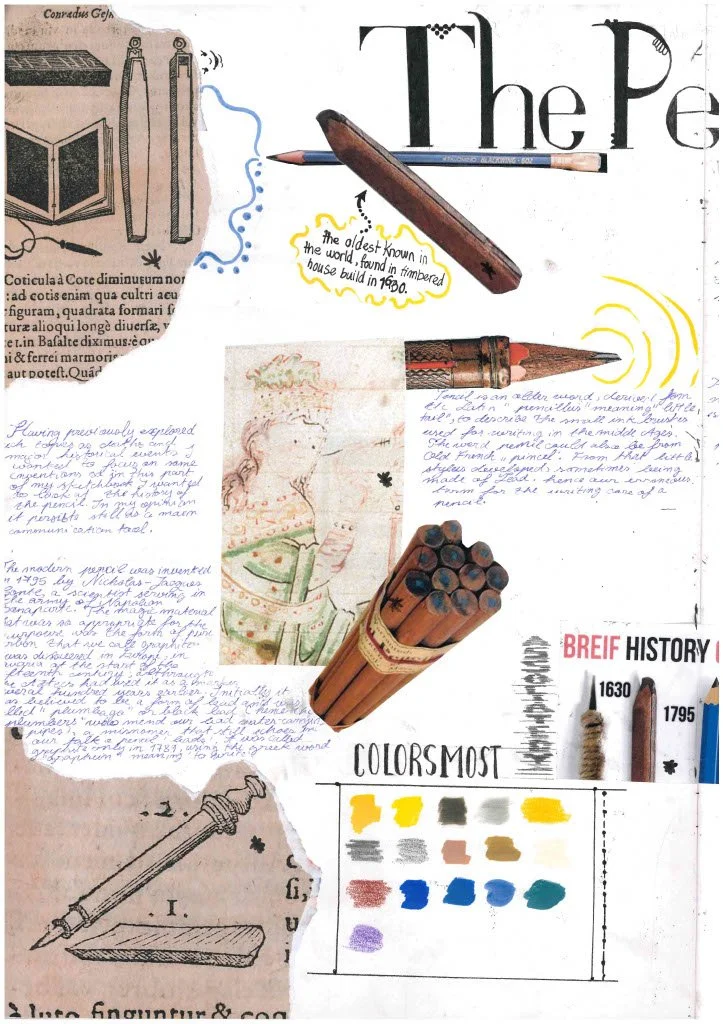 Conradus Ges
The Pe
TICONDO BLACKWING 602
the oldest known in
the world, found in timbered
house build in 1630.
Coticula à Cote diminutum non
: ad cotis enim qua cultri acu
figuram, quadrata formari
turæ alioqui longè diuersæ,
t. in Basalte diximus:
& ferrei marmoris
aut potest.
Pencil is an older word, derived from
the Latin "pencillus" meaning "little
tail", to describe the small ink brushes
used for writing in the middle Ages.
The word pencil could also be from
Old French "pincel". From that little
stylus developed, sometimes being
made of lead - hence our erroneous
term for the writing core of a
pencil.
Having previously explored
and
major historical events I
wanted to focus on some
inventions so in this part
of my sketchbook I wanted
to look at the history of
the pencil. In my opinion
it persists still as a main
communication tool.
The modern pencil was invented
in 1795 by Nicholas-Jacques
Conte, a scientist serving in
the army of Napoleon
Bonaparte. The magic material
that was so appropriate for the
purpose was the form of pure
carbon that we call graphite.
was discovered in
Bavaria at the start of the
fifteenth century, although
the Aztecs had used it as a marker
several hundred years earlier. Initially it
was believed to be a form of lead and
called "plumbago" or black lead (hence the
"plumbers" who mend our lead water-carrying
pipes), a misnomer that still echoes in
our talk of pencil "leads". It was called
graphite only in 1789, using the Greek word
"graphein" meaning "to write".
BREIF HISTORY
1630
1795
COLORSMOST
.2.
.I.
fi,
à Luto finguntur & coq